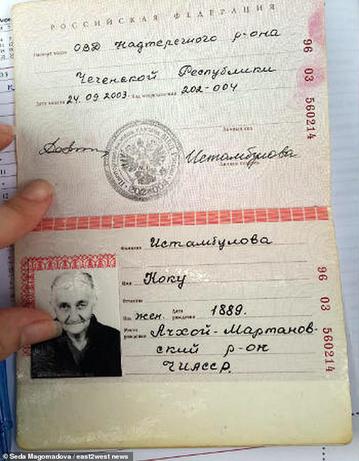 РОССИЙСКАЯ ФЕДЕРАЦИЯ
Паспорт выдан ОВД Надтеречного р-она
Чеченской Республики
Дата выдачи 24.09.2003 Код подразделения 202-004
96 03 560214
Личный код
Истамбулова
Личная подпись
Фамилия Истамбулова
Имя Коку
Отчество
Пол жен. Дата рождения 1889.
Место рождения Ачхой-Мартанов-
ский р-он
ЧИАССР.
96 03 560214
© Seda Magomadova / east2west news